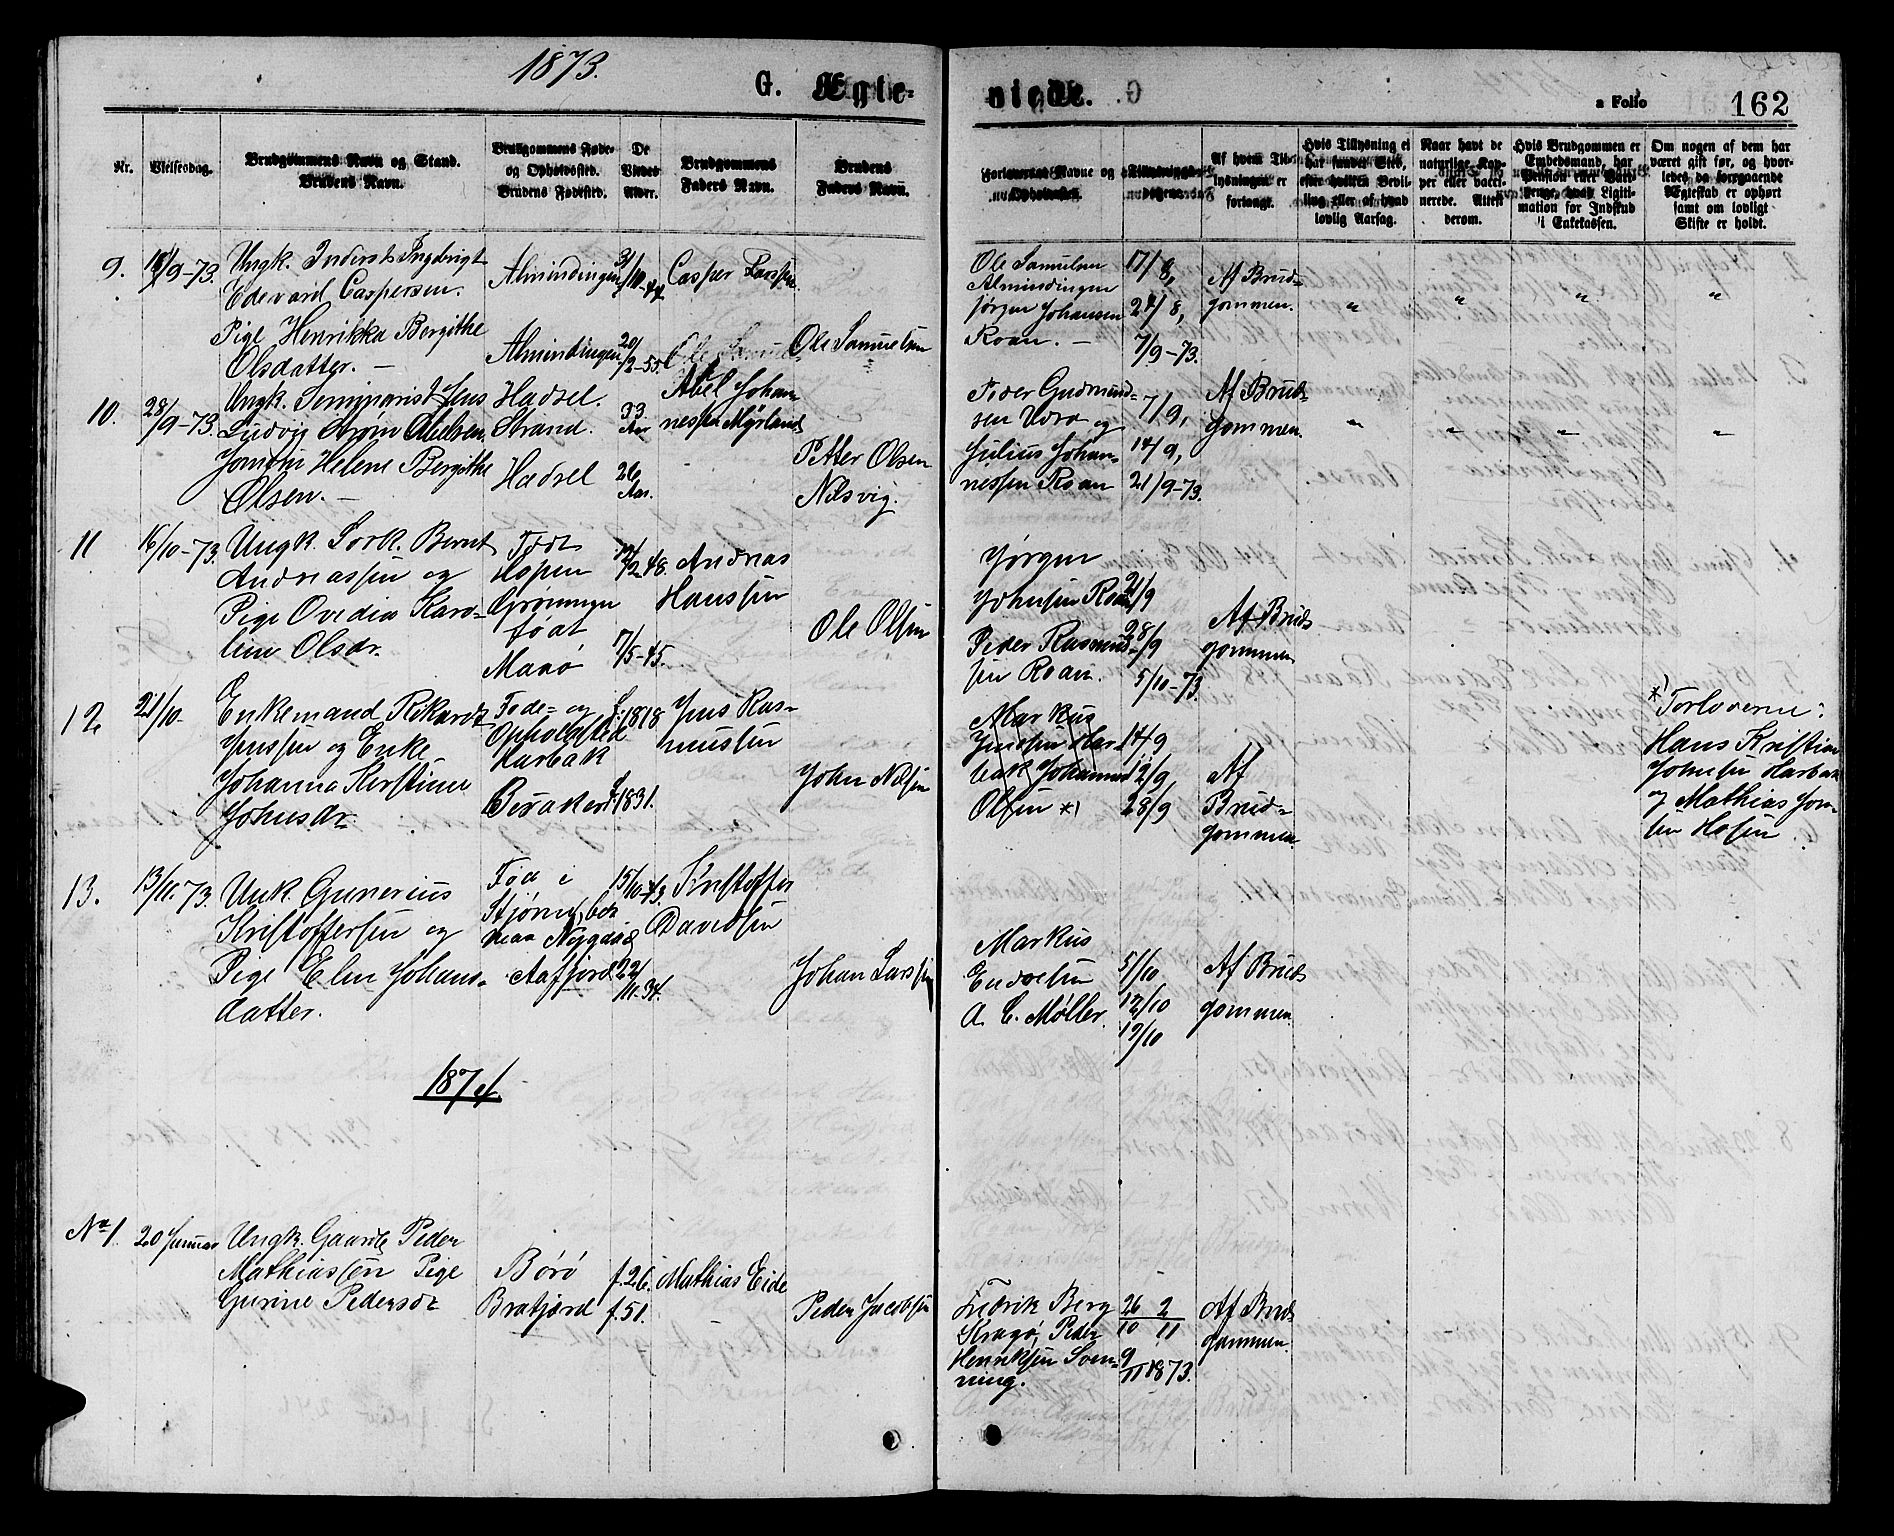 1873.
G. Ægte-
viede.
a Folio
162
Nr.
Vielsesdag.
Brudgommens Navn og Stand.
Brudens Navn.
Brudgommens Føde-
og Opholdssted.
Brudens Fødested.
De
Viedes
Alder.
Brudgommens
Faders Navn.
Brudens
Faders Navn.
Forlovernes Navne og
Opholdssted.
Tillysnings-
dagene.
Af hvem Til-
lysningen er
forlangt.
Hvis Tillysning ei
har fundet Sted,
efter hvilken Bevil-
ling eller af hvad
lovlig Aarsag.
Naar havt de
naturlige Kop-
per eller vacci-
nerede. Attest
derom.
Hvis Brudgommen er
Embedsmand, har
Pension eller Var-
penge, hvad Ligiti-
mation for Indskud
i Enkekassen.
Om nogen af dem har
været gift før, og hvor-
ledes da forrgaaende
Ægteskab er ophørt
samt om lovligt
Skifte er holdt.
9.
14/9-73.
Ungk. Inderst Ingebrigt
Edevard Caspersen.
Pige Henrikka Bergithe
Olsdatter. —
Almindingen
Almindingen
31/10-44
20/2-55.
Casper Larssen
Ole Samuelsen
Ole Samuelsen
Almindingen
Jørgen Johansen
Roan. —
17/8,
24/8,
7/9-73.
Af Brud-
gommen.
"
"
"
"
10.
28/9-73.
Ungk. Seminarist Jens
Ludvig Strøm Abelsen.
Jomfru Helene Bergithe
Olsen. —
Hadsel.
Strand.
Hadsel
33
Aar
26
Aar.
Abel Johan
nessen Myrland
Petter Olsen
Nilsvig.
Peder Gudmund-
sen Vora og
Julius Johan-
nessen Roan
7/9,
14/9,
21/9-73.
Af Brud-
gommen.
"
"
"
"
11
16/10-73.
Ungk. Losk. Bernt
Andreassen og
Pige Ovedia Karo-
line Olsdr.
Født
Hopen
Grønningen
født
Manø
14/2-48.
7/5-45.
Andreas
Hanssen
Ole Olsen
Jørgen
Johnsen Roan
Peder Rasmus-
sen Roan.
21/9
28/9
5/10-73.
Af Brud
gommen
12
21/10-
Enkemand Rikardt
Jenssen og Enke
Johanna Kirstine
Johnsdr.
Føde- og
Opholdssted
Harbak
Beraker
f. 1818
f. 1831.
Jens Ras-
mussen
John Nilsen
Markus
Jenssen Har
bak Johannes
Olsen *)
14/9
12/9,
28/9
Af
Brud-
gommen
*) Forloverne:
Hans Kristian
Johnsen Harbak
og Mathias Jon-
sen Hofen
13.
13/11.73.
Unk. Gunerius
Kristoffersen og
Pige Elen Johans-
datter.
Fød i
Stjørnen, boe
Aafjord
15/10-43.
22/11.34.
Kristoffer
Davidsen
Johan Larssen
Markus
Endresen
A. C. Møller.
5/10
12/10
19/10
Af Brud
gommen
1874.
No 1.
20 Januar
Ungk. Gaardb. Peder
Mathiassen Pige
Gurine Pedersdr
Børø
Bratjord
f. 26.
f. 51.
Mathias Eide
Peder Jacobsen
Fredrik Berg
Kragø, Peder
Henriksen Sven-
ning.
26/10 2/11
9/11 1873.
Af Brud
gommen.